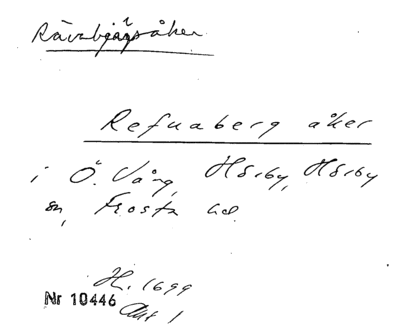 Rävabjärsåker
Refuaberg åker
i Ö. Vång, Hörby, Hörby
sn, Frosta hd.
H. 1699
Nr 10446 Akt 1